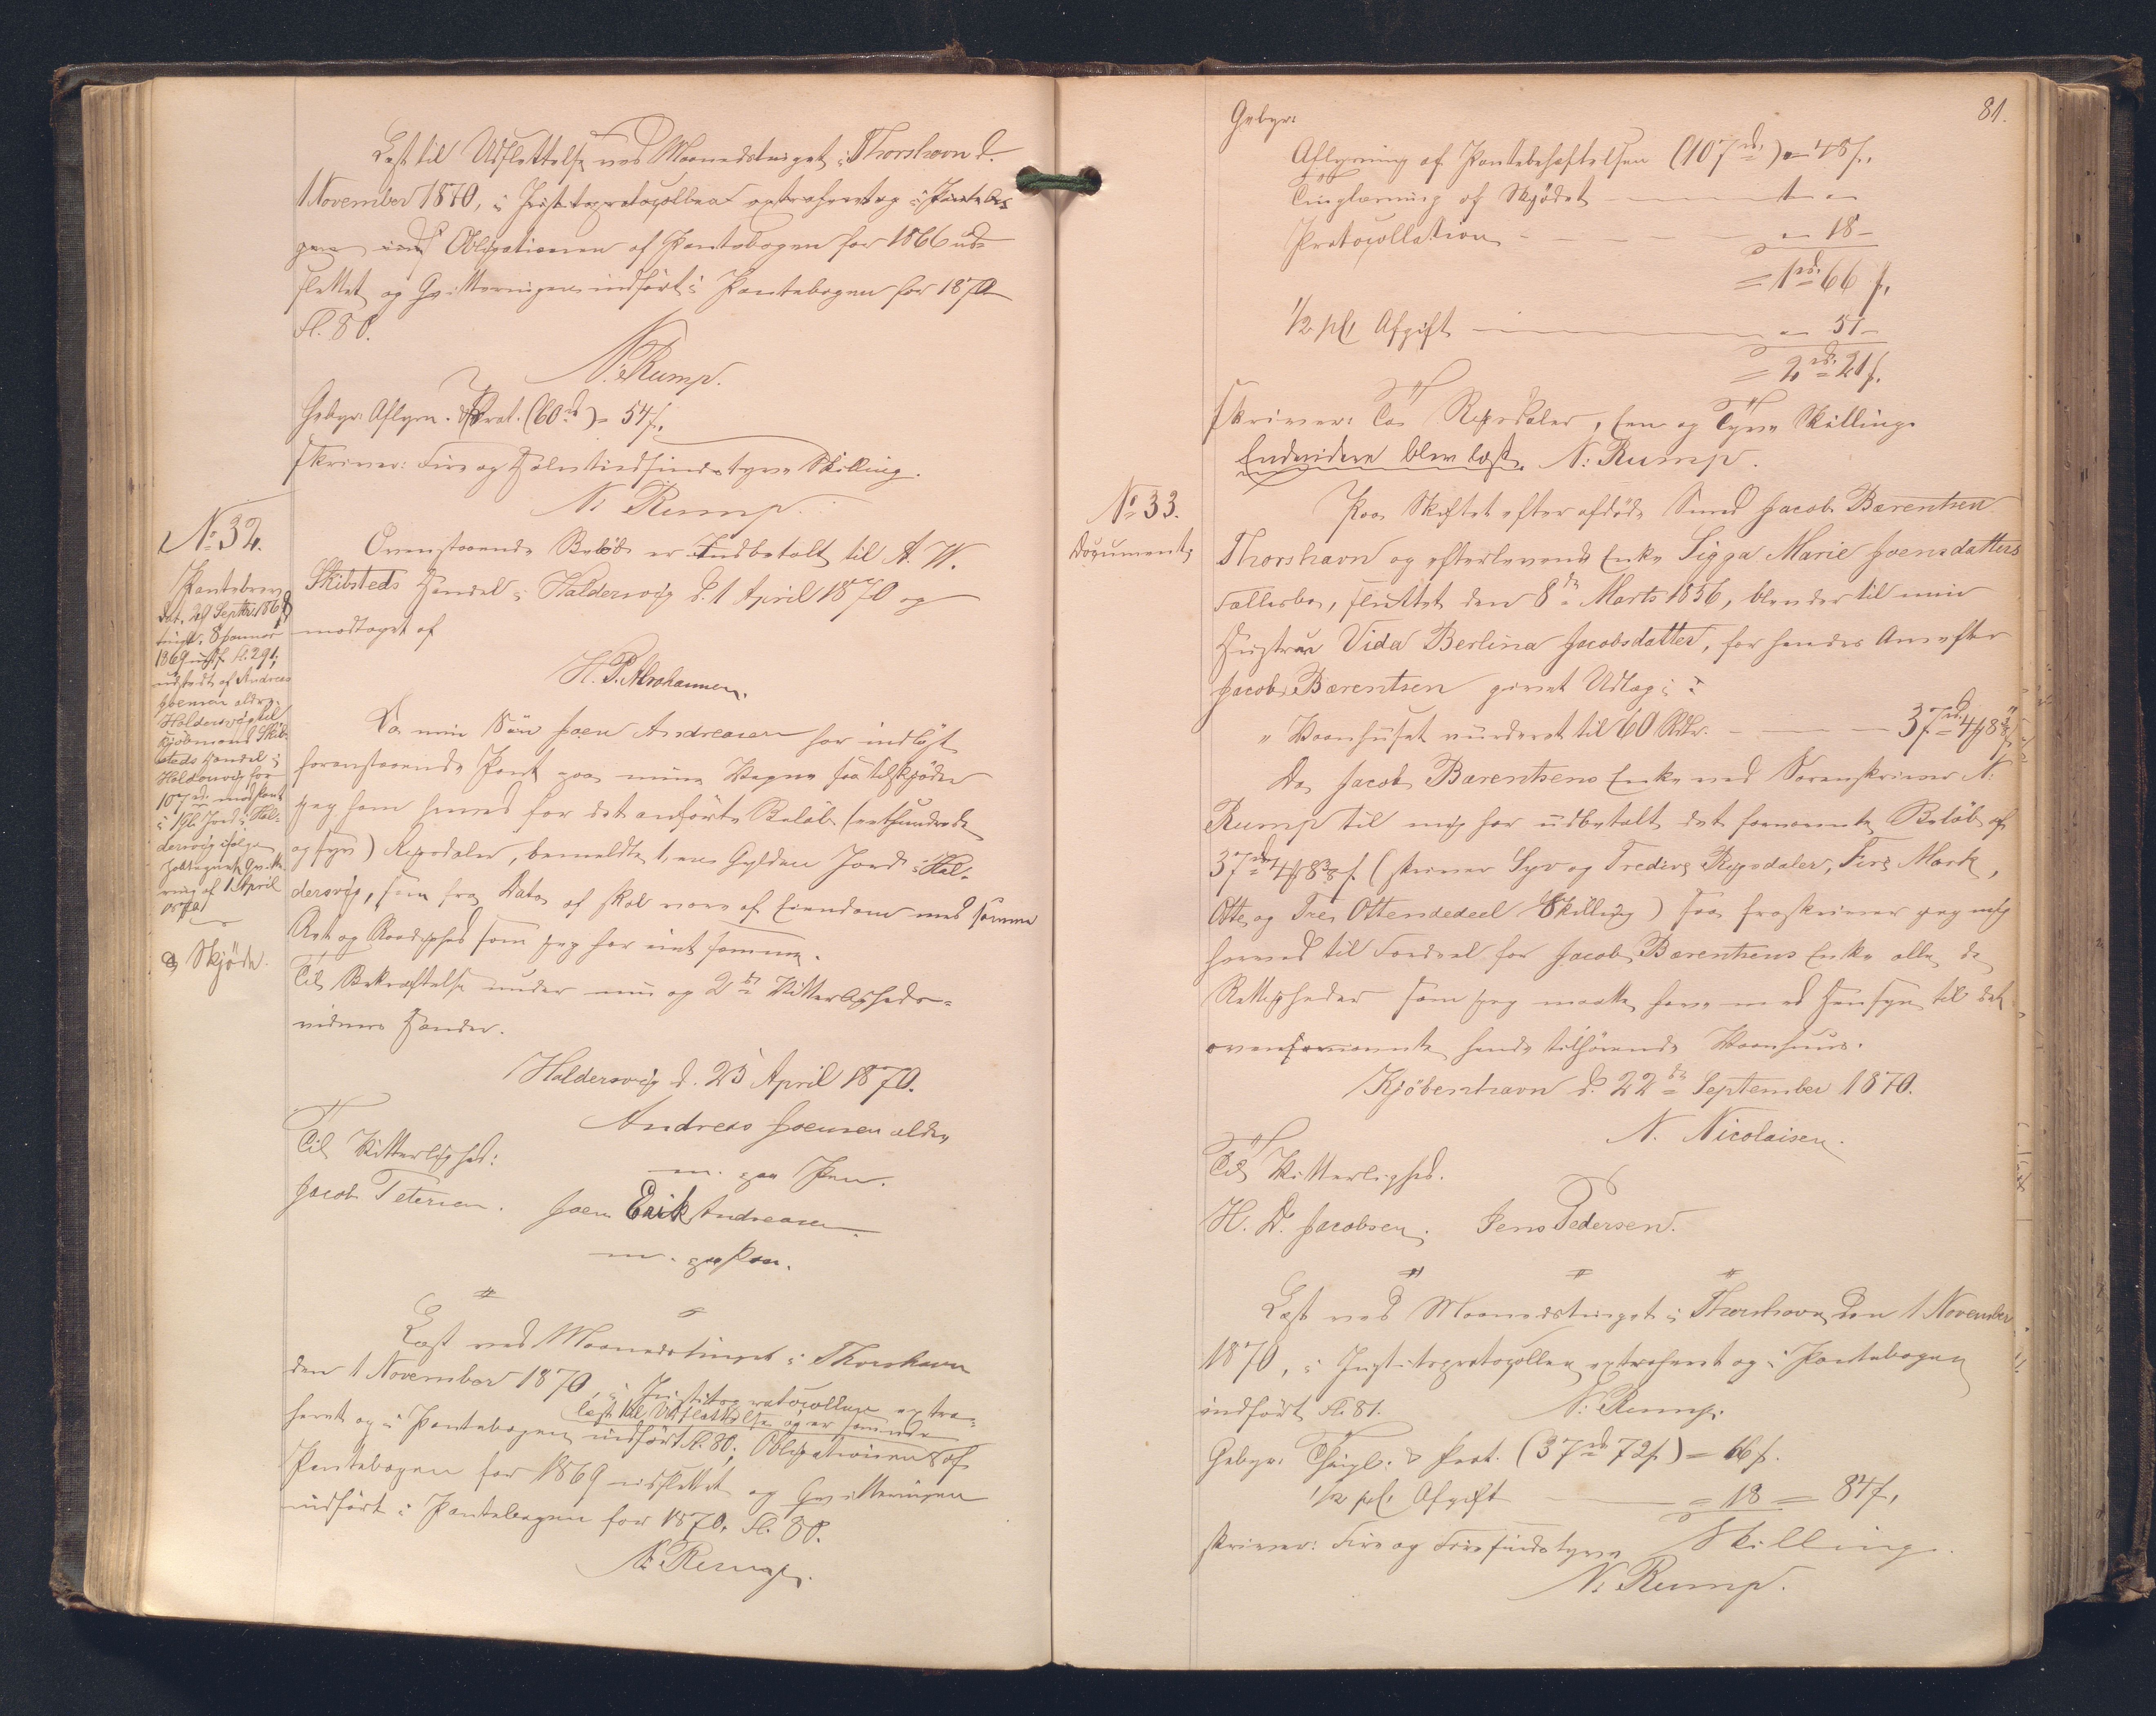 Læst til Udslettelse ved Maanedstinget i Thorshavn d.
1 November 1870, i Justitsprotocollen extraheret og i Pantebo
gen Obligationen af Pantebogen for 1866 ud-
slettet og Qvitteringen indført i Pantebogen for 1870
Fl. 80.
N. Rump.
Gebyr: Aflysn. & Prot. (60 rd) = 54 s.
skriver: Fire og Halvtredsindstyve Skilling.
N. Rump.
No. 32.
Pantebrev
dat. 29 Septbr 1868
tingl. 8 Januar
1869 indf. fl. 291,
udstedt af Andreas
Joensen ældre
Haldersvig til
Kjöbmand Skib-
steds Handel i
Haldersvig for
107 rd. mod Pant
i 1 Gl. Jord i Hal-
dersvig ifølge
Qvitte-
ring af 1 April
1870
& Skjöde.
Ovenstaaende Beløb er Indbetalt til A. W.
Skibsteds Handel i Haldersvig d. 1 April 1870 og
modtaget af
H. P. Abrahamsen.
Da min Sön Joen Andreasen har indløst
foranstaaende Pant paa mine Vegne saa tilskjöder
jeg ham herved for det anförte Beløb (eethundrede
og syv) Rigsdaler, bemeldte 1, en Gylden Jord i Hal-
dersvig, som fra Dato af skal være af Eiendom med samme
Ret og Raadighed som jeg har eiet samme.
Til Bekræftelse under min og 2de Vitterligheds-
vidners Hænder.
Haldersvig d. 25 April 1870.
Andreas Joensen ældre
Til Vitterlighed:
m. paa Pen.
Jacob Petersen. Joen Erik Andreasen
m. paa Pen.
Læst ved Maanedstinget i Thorshavn
den 1 November 1870, i Justitsprotocollen extra-
læst til Udslettelse og er samme
heret og i Pantebogen indført Fl. 80; Obligationen af
Pantebogen for 1869 udslettet og Qvitteringen
indført i Pantebogen for 1870, Fl. 80.
N. Rump.
81.
Gebyr:
Aflysning af Pantebehæftelsen (107 rd.) = 48 s.
Tinglæsning af Skjödet
Protocollation - 18 -
= 1 rd. 66 s.
1/2 pCt. Afgift - 51 -
= 2 rd. 21 s.
skriver: To Rigsdaler, Een og Tyve Skilling.
Endvidere blev læst. N. Rump.
No. 33.
Document,
Paa Skiftet efter afdöde Smed Jacob Bærentsen
Thorshavn og efterlevende Enke Sigga Marie Joensdatters
Fællesbo, sluttet den 8de Marts 1856, blev der til min
Hustrue Vida Berlina Jacobsdatter, for hendes Arv efter
Jacob Bærentsen givet Udlæg i:
" Vaanhuset vurderet til 60 Rdlr. - - - 37 rd 4 ℔ 8 3/8 s
Da Jacob Bærentsens Enke ved Sorenskriver N:
Rump til mig har udbetalt det fornævnte Beløb af
37 rd 4 ℔ 8 3/8 s. (skriver Syv og Tredive Rigsdaler, Fire Mark,
Otte og Tre Ottendedeel Skilling) saa fraskriver jeg mig
herved til Fordeel for Jacob Bærentsens Enke alle de
Rettigheder som jeg maatte have med Hensyn til det
ovenfornævnte hende tilhörende Vaanhuus.
Kjöbenhavn d. 22de September 1870.
N. Nicolaisen.
Til Vitterlighed.
H. D. Jacobsen. Jens Pedersen.
Læst ved Maanedstinget i Thorshavn den 1 November
1870, i Justitsprotocollen extraheret og i Pantebogen
indfört Fl. 81. N. Rump.
Gebyr: Tingl. & Prot. (37 rd 72 s) = 66 s.
1/2 pCt. Afgift = 18 = 84 s.
skriver: Fire og Firsindstyve Skilling.
N. Rump.